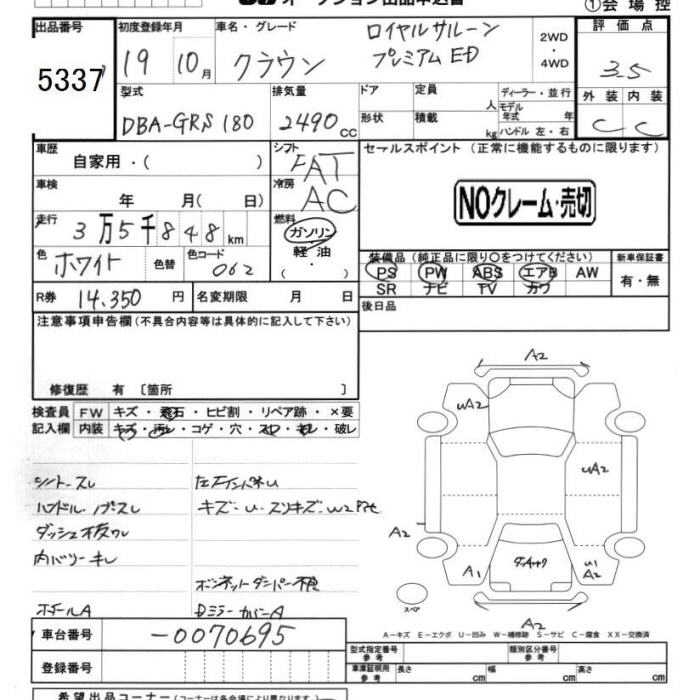 ①会場控
出品番号 5337
初度登録年月 19 10月
車名・グレード クラウン
ロイヤルサルーン
プレミアムED
2WD
・
4WD
評価点 3.5
外装 内装
C C
型式 DBA-GRS180
排気量 2490cc
ドア
形状
定員 人
積載 kg
ディーラー・並行
モデル年式 年
ハンドル 左・右
車歴 自家用・( )
シフト FAT
車検 年 月( 日)
冷房 AC
走行 3万5千848km
燃料 ガソリン・軽油・( )
色 ホワイト 色替 色コード 062
R券 14,350円 名変期限 月 日
セールスポイント(正常に機能するものに限ります)
NOクレーム・売切
装備品(純正品に限り○をつけてください)
新車保証書
PS PW ABS エアB AW
有・無
SR ナビ TV カワ
後日品
注意事項申告欄(不具合内容等は具体的に記入して下さい)
修復歴 有〔箇所 〕
検査員記入欄
FW キズ・飛石・ヒビ割・リペア跡・×要
内装 キズ・汚レ・コゲ・穴・スレ・キレ・破レ
シートスレ
ハンドル・ノブスレ
ダッシュ板ワレ
内バリキレ
キズ・U・スリキズ・W2Pそむ
ボンネットダンパー不良
ホイールA
DミラーカバーA
A2
uA2
uA2
A2
A1
u1
A2
スペア
A2
A-キズ E-エクボ U-凹み W-補修跡 S-サビ C-腐食 XX-交換済
車台番号 -0070695
登録番号
型式指定番号 参考
類別区分番号 参考
車庫証明用 参考
長さ cm
幅 cm
高さ cm
希望出品コーナー(コーナーは各会場により異なります)